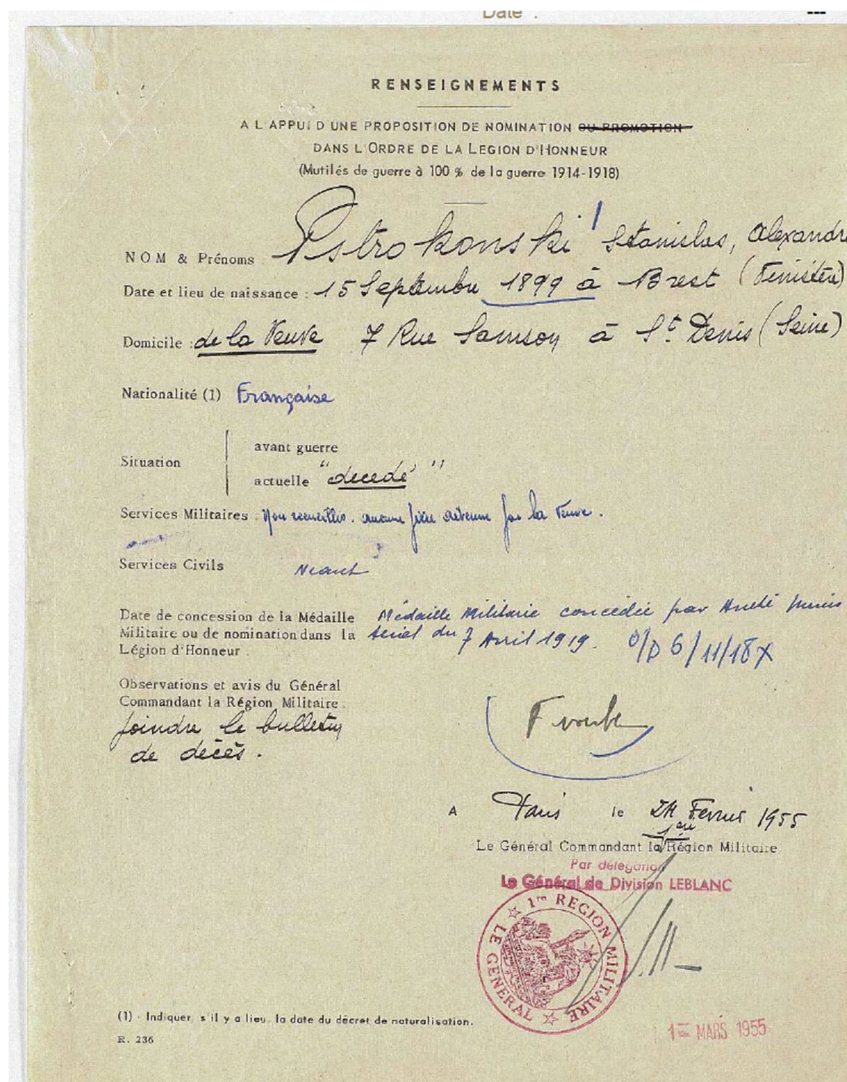 Date :
RENSEIGNEMENTS
A L'APPUI D'UNE PROPOSITION DE NOMINATION OU PROMOTION
DANS L'ORDRE DE LA LEGION D'HONNEUR
(Mutilés de guerre à 100 % de la guerre 1914-1918)
NOM & Prénoms : Pstrokonski Stanislas, Alexandre
Date et lieu de naissance : 15 Septembre 1899 à Brest (Finistère)
Domicile : de la Veuve 7 Rue Samson à St Denis (Seine)
Nationalité (1) Française
Situation
avant guerre
actuelle "décédé"
Services Militaires : Non recueillis. aucune pièce détenue par la Veuve.
Services Civils Néant
Date de concession de la Médaille Médaille Militaire concédée par Arrêté minis
Militaire ou de nomination dans la tériel du 7 Avril 1919. 6/11/18
Légion d'Honneur :
Observations et avis du Général
Commandant la Région Militaire :
Joindre le bulletin
de décès.
A Paris le 24 Fevrier 1955
Le Général Commandant la 1ere Région Militaire
Par délégation
Le Général de Division LEBLANC
1re REGION MILITAIRE
LE GENERAL
1er MARS 1955
(1) - Indiquer, s'il y a lieu, la date du décret de naturalisation.
R. 236